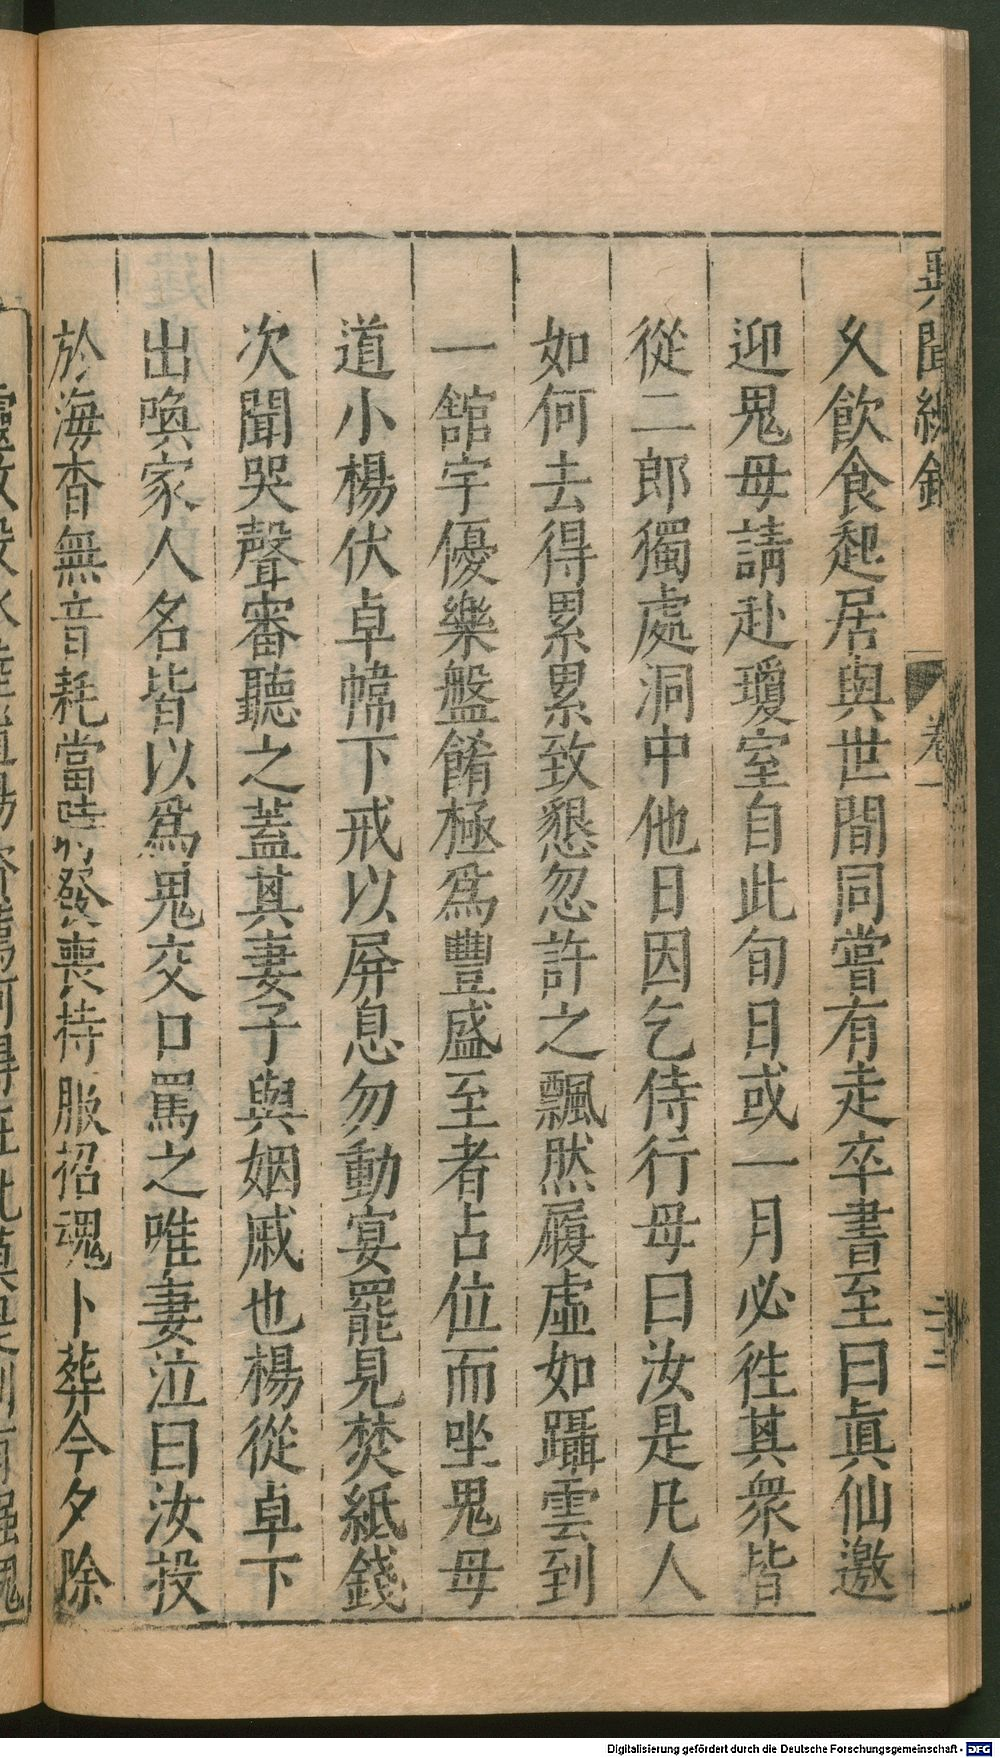 異聞總錄 卷一 二十三
久飲食起居與世間同嘗有走卒書至曰眞仙邀
迎鬼母請赴瓊室自此旬日或一月必徃其衆皆
從二郎獨處洞中他日因乞侍行母曰汝是凡人
如何去得累累致懇忽許之飄然履虛如躡雲到
一舘宇優樂盤餚極爲豐盛至者占位而坐鬼母
道小楊伏卓幃下戒以屏息勿動宴罷見焚紙錢
次聞哭聲審聽之蓋其妻子與姻戚也楊從卓下
出喚家人名皆以爲鬼交口罵之唯妻泣曰汝投
於海杳無音耗當時發喪持服招魂卜葬今夕除
Digitalisierung gefördert durch die Deutsche Forschungsgemeinschaft - DFG